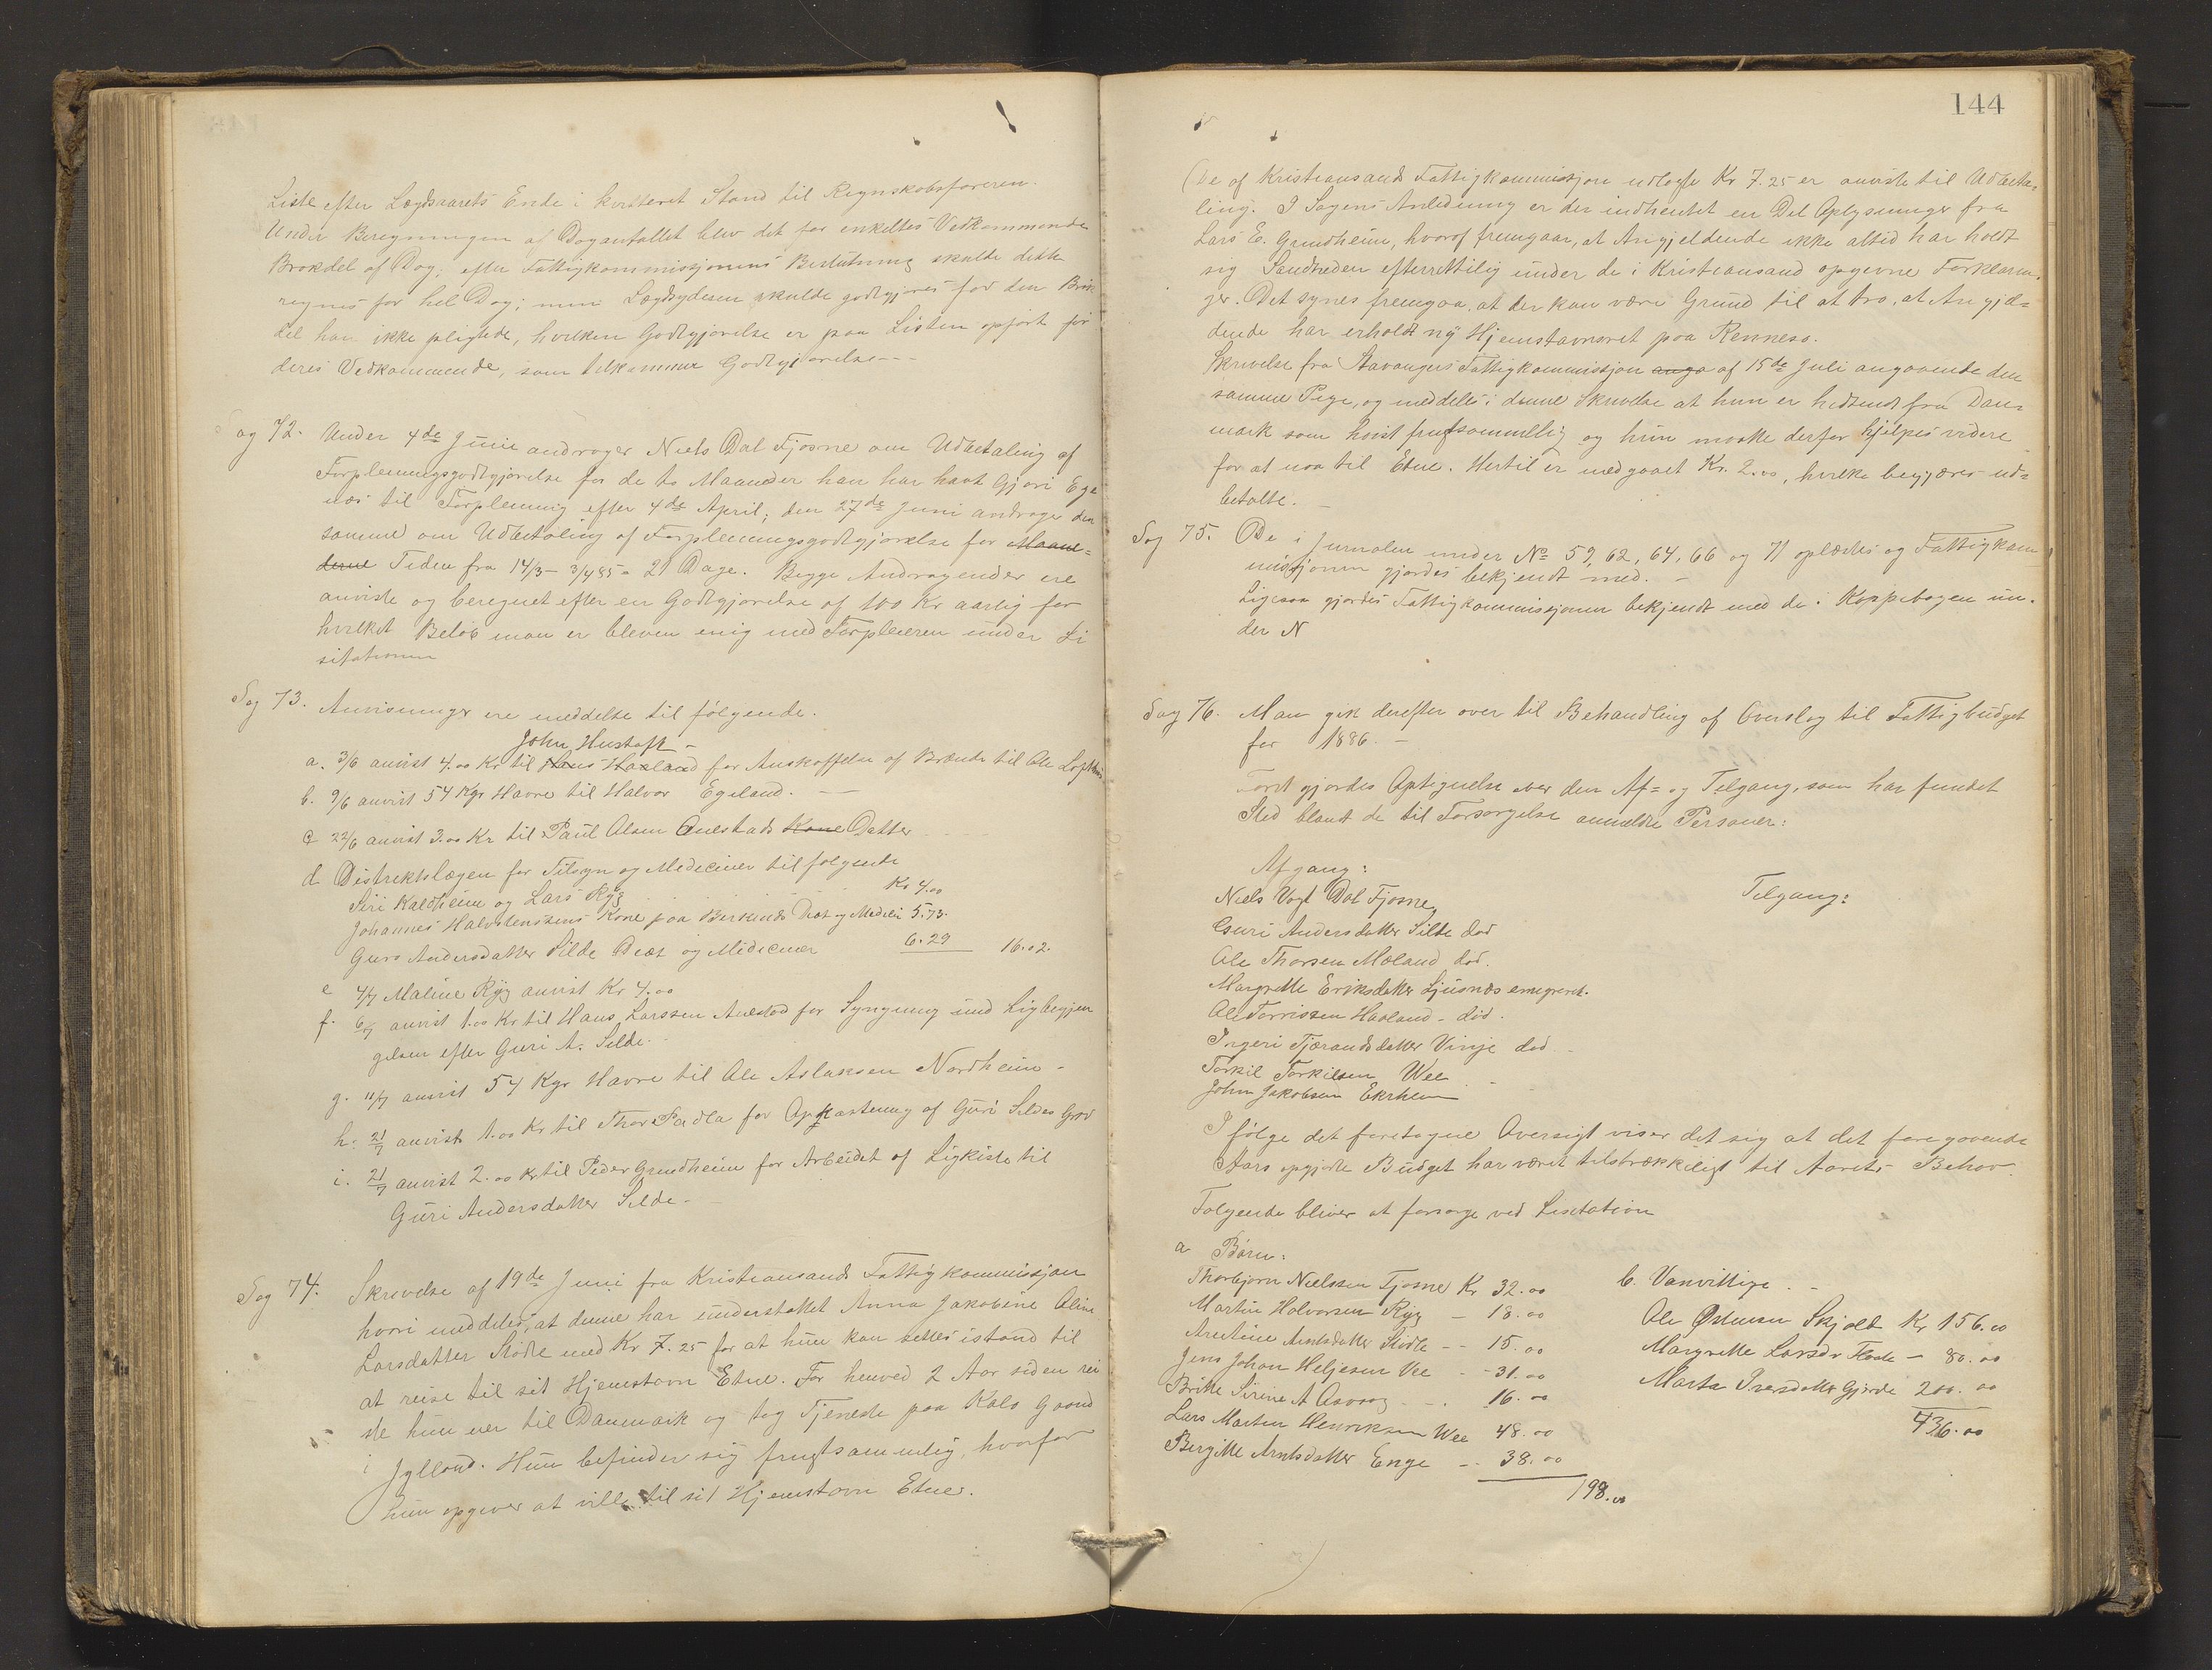 Liste efter Lægdsaarets Ende i kvitteret Stand til Regnskabsføreren.
Under Beregningen af Dogantallet blev det for enkeltes Vedkommende
Brøkdel af Dag; efter Fattigkommissjonens Beslutning skulde dette
regnes for hel Dag; men Lægdsyderen skulde godtgjøres for den Brøk
del han ikke pligtede, hvilken Godtgjørelse er paa Listen opført for
deres Vedkommende, som tilkommer Godtgjørelse---
ag 72. Under 4de Juni andrager Niels Dal Fjøsne om Udbetaling af
Forpleiningsgodtgjørelse for de to Maaneder han har havt Gjøri Ege
næs til Forpleining efter 4de April; den 27de Juni andrager den
samme om Udbetaling af Forpleiningsgodtgjørelse for Maane=
derne Tiden fra 14/3 - 3/4 85 = 21 Dage. Begge Andragender ere
anviste og beregnet efter en Godtgjørelse af 100 Kr aarlig for
hvilket Beløb man er bleven enig med Forpleieren under Li
sitationen
Sag 73. Anvisninger ere meddelte til følgende.
John Hustoft -
a. 3/6 anvist 4.00 Kr til Hans Haaland for Anskaffelse af Brænde til Ole Lofthus
b. 9/6 anvist 54 Kgr Havre til Halvor Egeland.
c 22/6 anvist 3.00 Kr til Paul Olsen Ouestads Kone Datter
d Distriktslægen for Tilsyn og Mediciner til følgende
Siri Kaldheim og Lars Ryg Kr 4.00
Johannes Halvstenssens Kone paa Birkenes Diæt og Medici 5.73.
Guro Andersdatter Silde Diæt og Mediciner 6.29 16.02.
e 4/7 Maline Ryg anvist Kr 4.00
f. 6/7 anvist 1.00 Kr til Hans Larssen Auestad for Syngning und Ligbegjæn
gelsen efter Guri A. Silde.
g. 11/7 anvist 54 Kgr Havre til Ole Aslaksen Nordheim -
h. 21/7 anvist 1.00 Kr til Thor Sædla for Opkastning af Guri Sildes Grav
i. 21/7 anvist 2.00 Kr til Peder Grindheim for Arbeidet af Ligkiste til
Guri Andersdatter Silde -
Sag 74. Skrivelse af 19de Juni fra Kristiansands Fattigkommissjon
hvori meddeles, at denne har understøttet Anna Jakobine Oline
Larsdatter Stødle med Kr 7.25 for at hun kan settes istand til
at reise til sit Hjemstavn Etne. For henved 2 Aar siden rei
ste hun ner til Danmark og tog Tjeneste paa Kalø Gaard
i Jylland. Hun befinder sig frugtsommelig, hvorfor
hun opgiver at ville til sit Hjemstavn Etne.
144
(De af Kristiansands Fattigkommissjon udlagte Kr 7.25 er anviste til Udbeta=
ling. I Sagens Anledning er der indhentet en Del Oplysninger fra
Lars E. Grindheim, hvoraf fremgaar, at Angjeldende ikke altid har holdt
sig Sandheden efterrettelig under de i Kristiansand opgivne Forklarin=
ger. Det synes fremgaa, at der kan være Grund til at tro, at Angjæl=
dende har erholdt ny Hjemstavnsret paa Rennesø.
Skrivelse fra Stavangers Fattigkommissjon anga af 15de Juli angaaende den
samme Pige, og meddeles i denne Skrivelse at hun er hidsendt fra Dan=
mark som høist frugtsommelig og hun maatte derfor hjælpes videre
for at naa til Etne. Hertil er medgaaet Kr. 2.00, hvilke begjæres ud=
betalte.
Sag 75. De i Jurnalen under No 59, 62, 64, 66 og 71 oplæstes og Fattigkom
missjonen gjordes bekjendt med. -
Ligesaa gjordes Fattigkommissjonen bekjendt med de i Kopibogen un=
der N
Sag 76. Man gik derefter over til Behandling af Overslag til Fattigbudget
for 1886. -
Først gjordes Optegnelse over den Af= og Tilgang, som har fundet
Sted blandt de til Forsørgelse anmeldte Personer:
Afgang: Tilgang:
Niels Vogt Dal Fjøsne
Guri Andersdatter Silde død
Ole Thorsen Mæland død.
Margrethe Eriksdatter Ljusnæs emegreret.
Ole Torrissen Haaland - død.
Ingeri Tjærandsdatter Vinje død
Torkil Torkilsen Wee
John Jakobsen Ekrheim
I følge det foretagne Oversigt viser det sig at det foregaaende
Aars opgjorte Budget har været tilstrækkeligt til Aarets Behov.
Følgende bliver at forsørge ved Lisitation
a Børn: b. Vanvittige.
Thorbjørn Nielssen Fjøsne Kr 32.00
Martin Halvorsen Ryg - 18.00 Ole Østensen Skjold Kr 156.00
Arntine Arntsdatter Stødle - - 15.00 Margrethe Larsdr Flaate - 80.00
Jens Johan Heljesen Vee - 31.00 Marta Iversdatter Gjerde 200.00
Britte Sirine A Aavaag - . 16.00 436.00
Lars Martin Henriksen Wee 48.00
Bergitte Arntsdatter Enge - 38.00
198.00